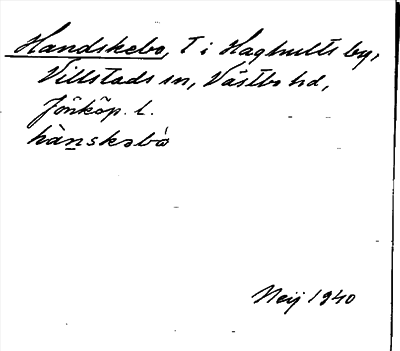 Handskebo, T i Haghults by,
Villstads sn, Västbo hd,
Jönköp. l.
hànskəbò
Neij 1940